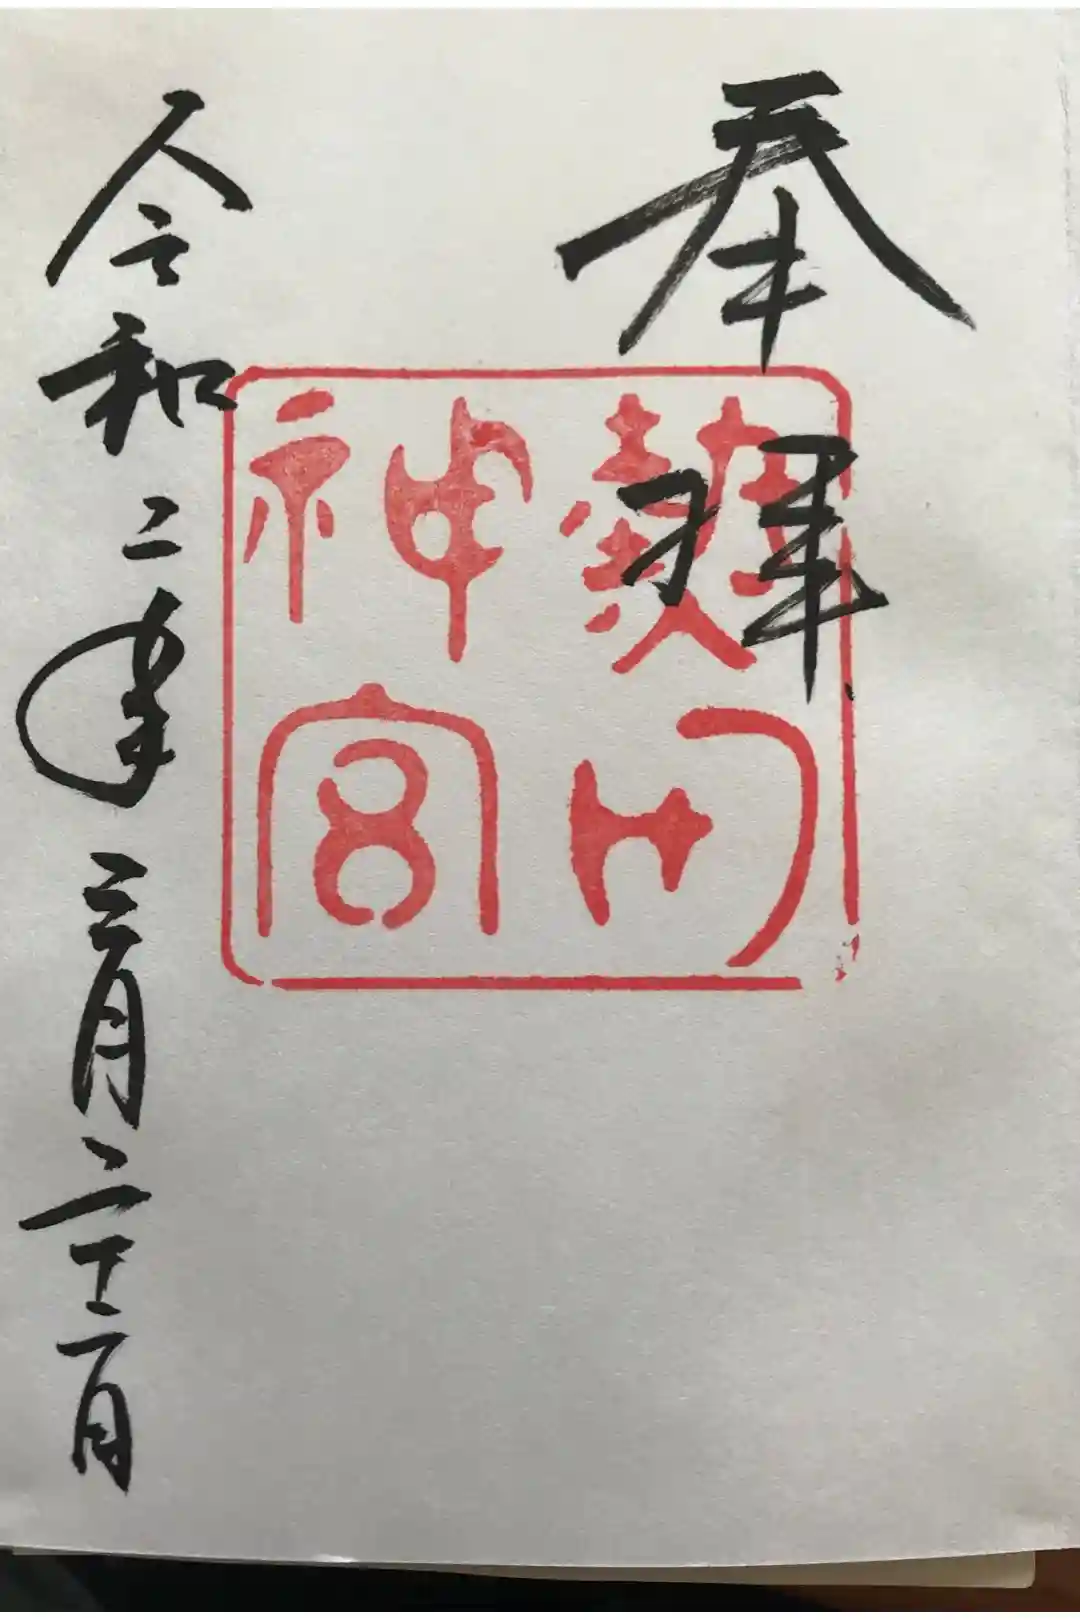 奉拝
熱田
神宮
令和二年三月二十二日